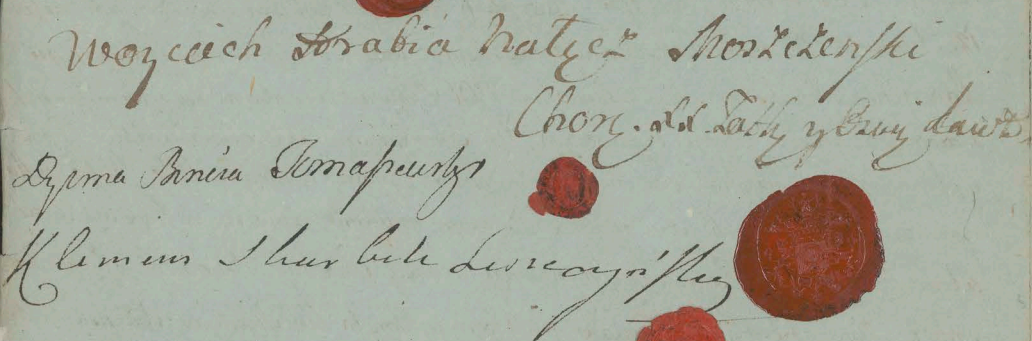 Woyciech Hrabia Nałęcz Moszczenski
Chorz.
Dyzma Boncza Tomaszewsky
Klemens Skarbek Leszczyński